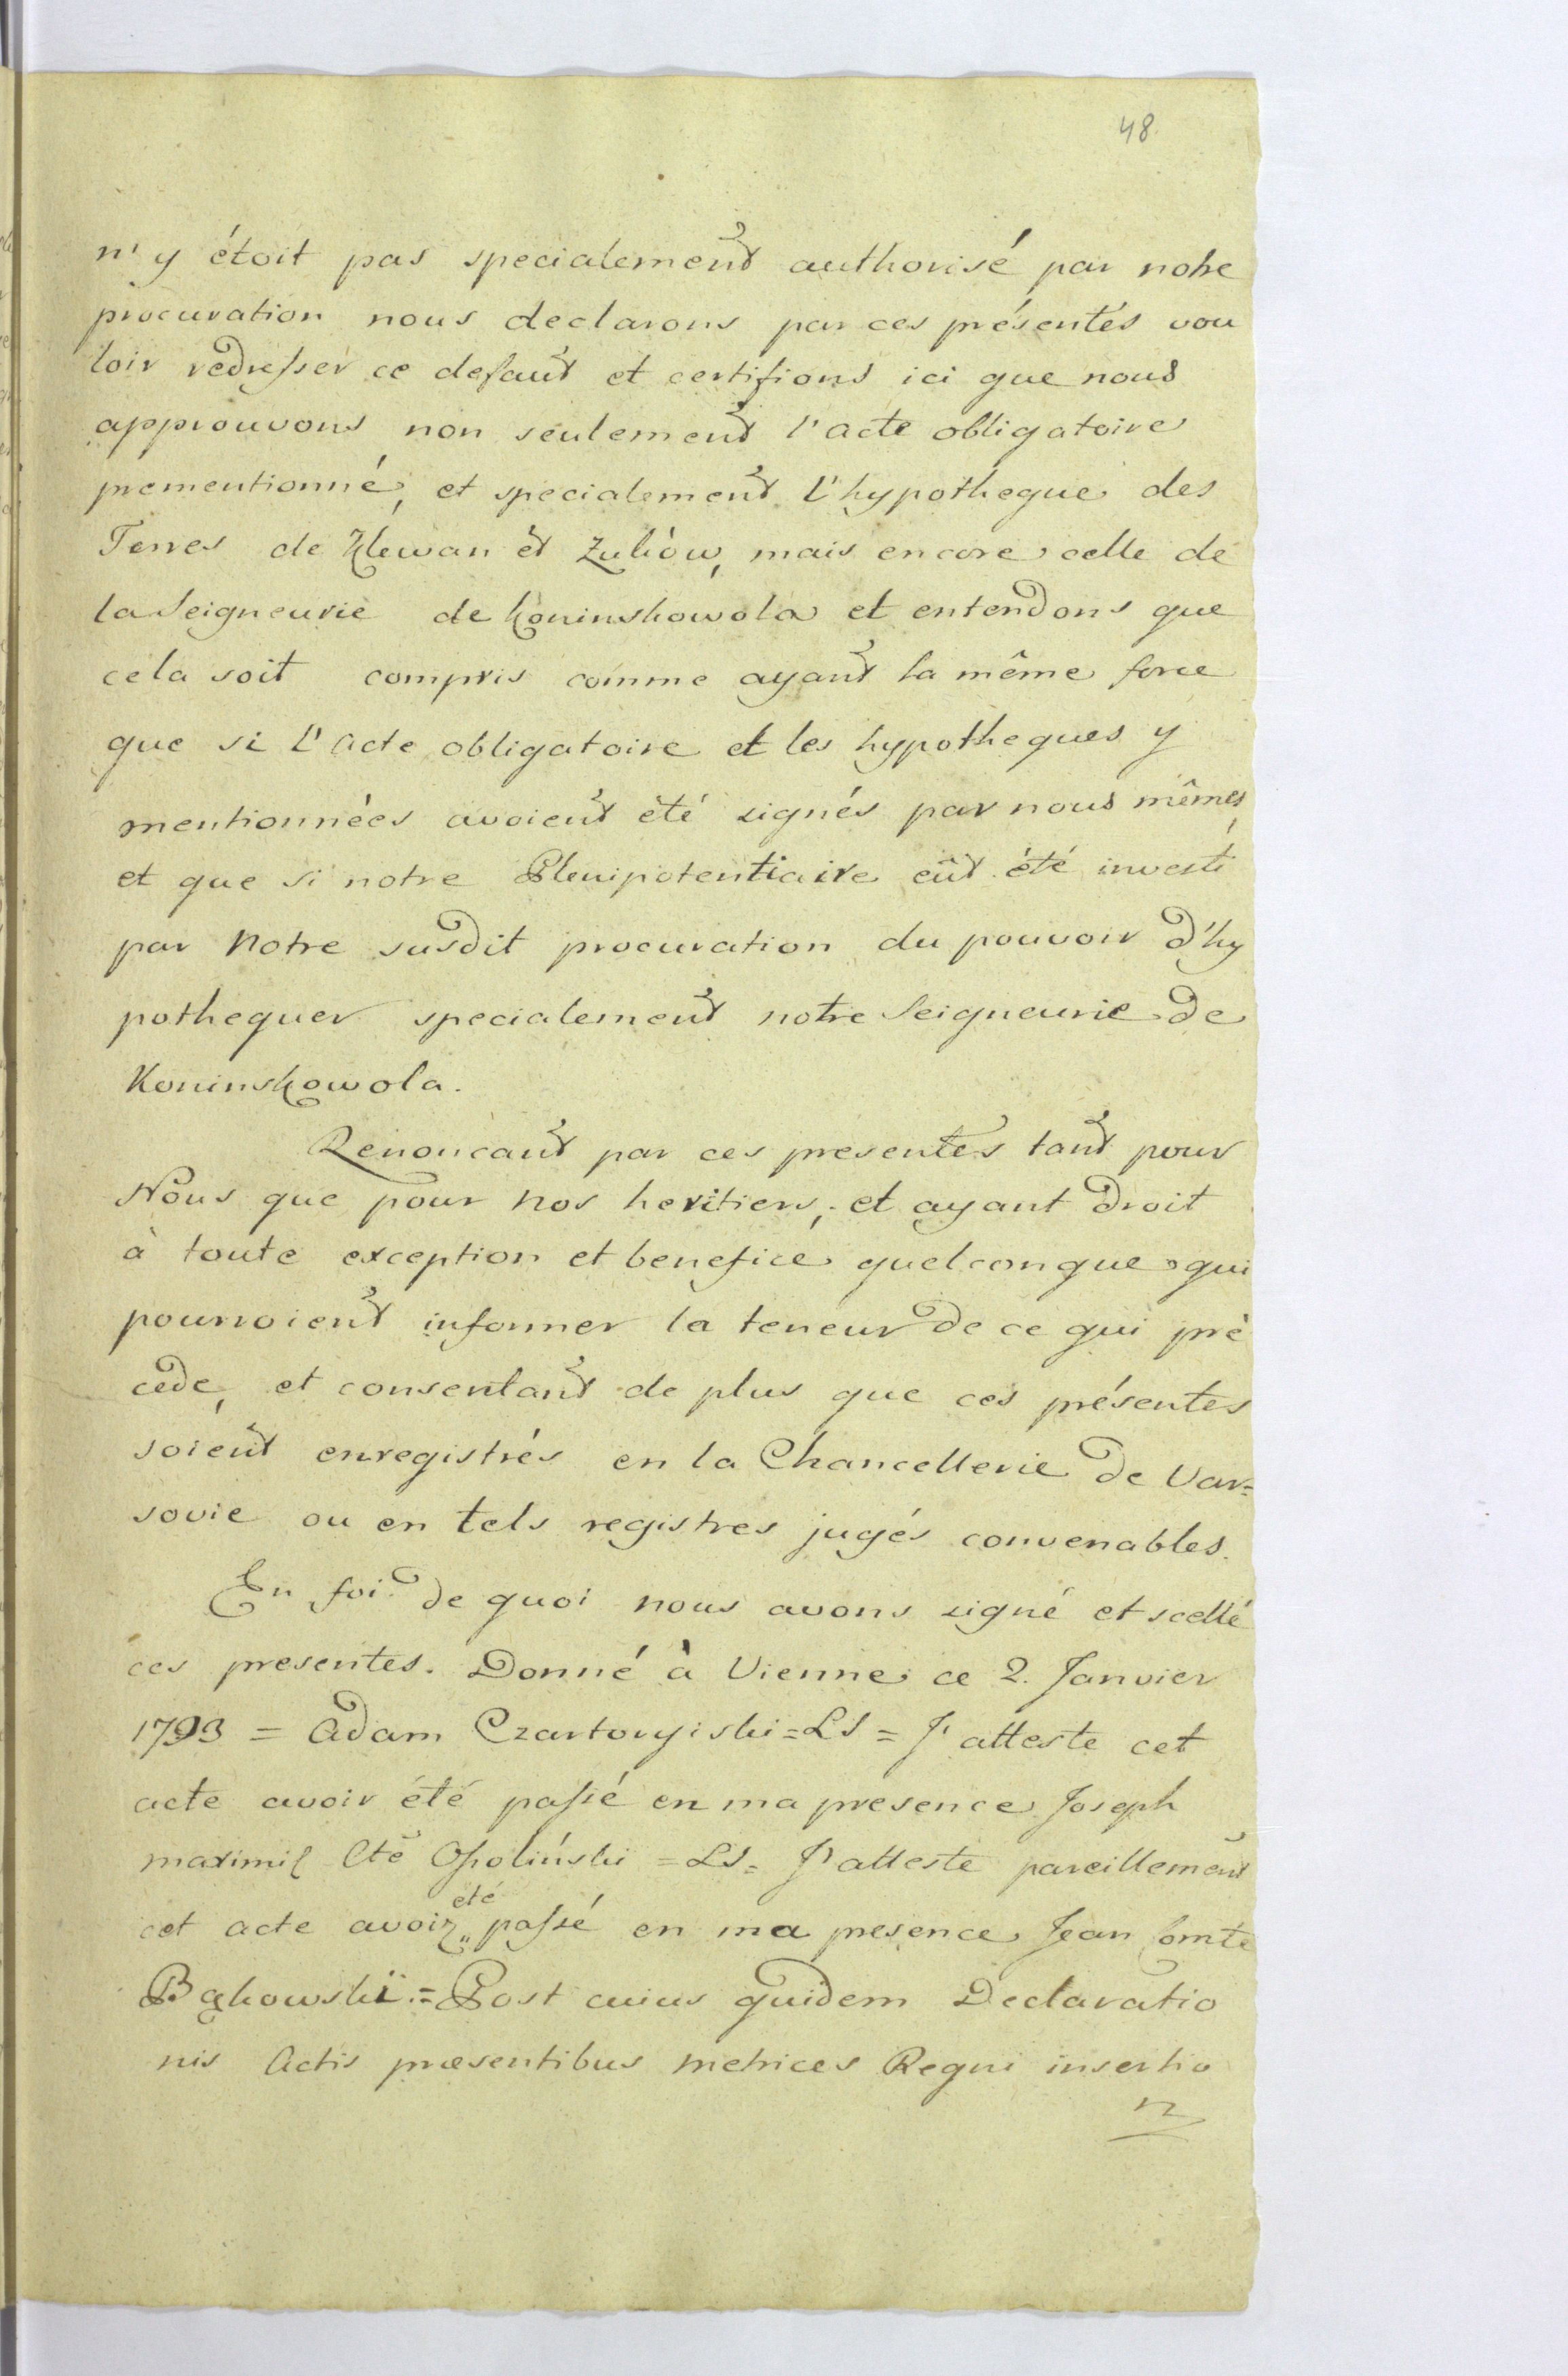 48
n'y étoit pas specialement authorisé par notre
procuration nous declarons par ces présentes vou
loir redresser ce defaut et certifions ici que nous
approuvons non seulement l'acte obligatoire
prementionné, et specialement l'hypotheque des
Terres de Klewan et Zuków, mais encore celle de
la Seigneurie de Koninskowola et entendons que
cela soit compris comme ayant la même force
que si l'acte obligatoire et les hypotheques y
mentionnées avoient été signés par nous mêmes,
et que si notre Plenipotentiaire eût été investi
par Notre susdit procuration du pouvoir d'hy
pothequer specialement notre Seigneurie de
Koninskowola.
Renoncant par ces presentes tant pour
Nous que pour nos heritiers, et ayant droit
à toute exception et benefice quelconque qui
pourroient informer la teneur de ce qui pré
cede, et consentant de plus que ces présentes
soient enregistrés en la Chancellerie de Var=
sovie ou en tels registres jugés convenables.
En foi de quoi nous avons signé et scellé
ces presentes. Donné à Vienne ce 2. Janvier
1793 = Adam Czartoryiski = LS = J'atteste cet
acte avoir été passé en ma presence Joseph
maximil Cte Ossoliński = LS = J'atteste pareillement
cet acte avoir été passé en ma presence Jean Comte
Bąkowski = Post cuius quidem Declaratio
nis Actis præsentibus metrices Regni insertio
n